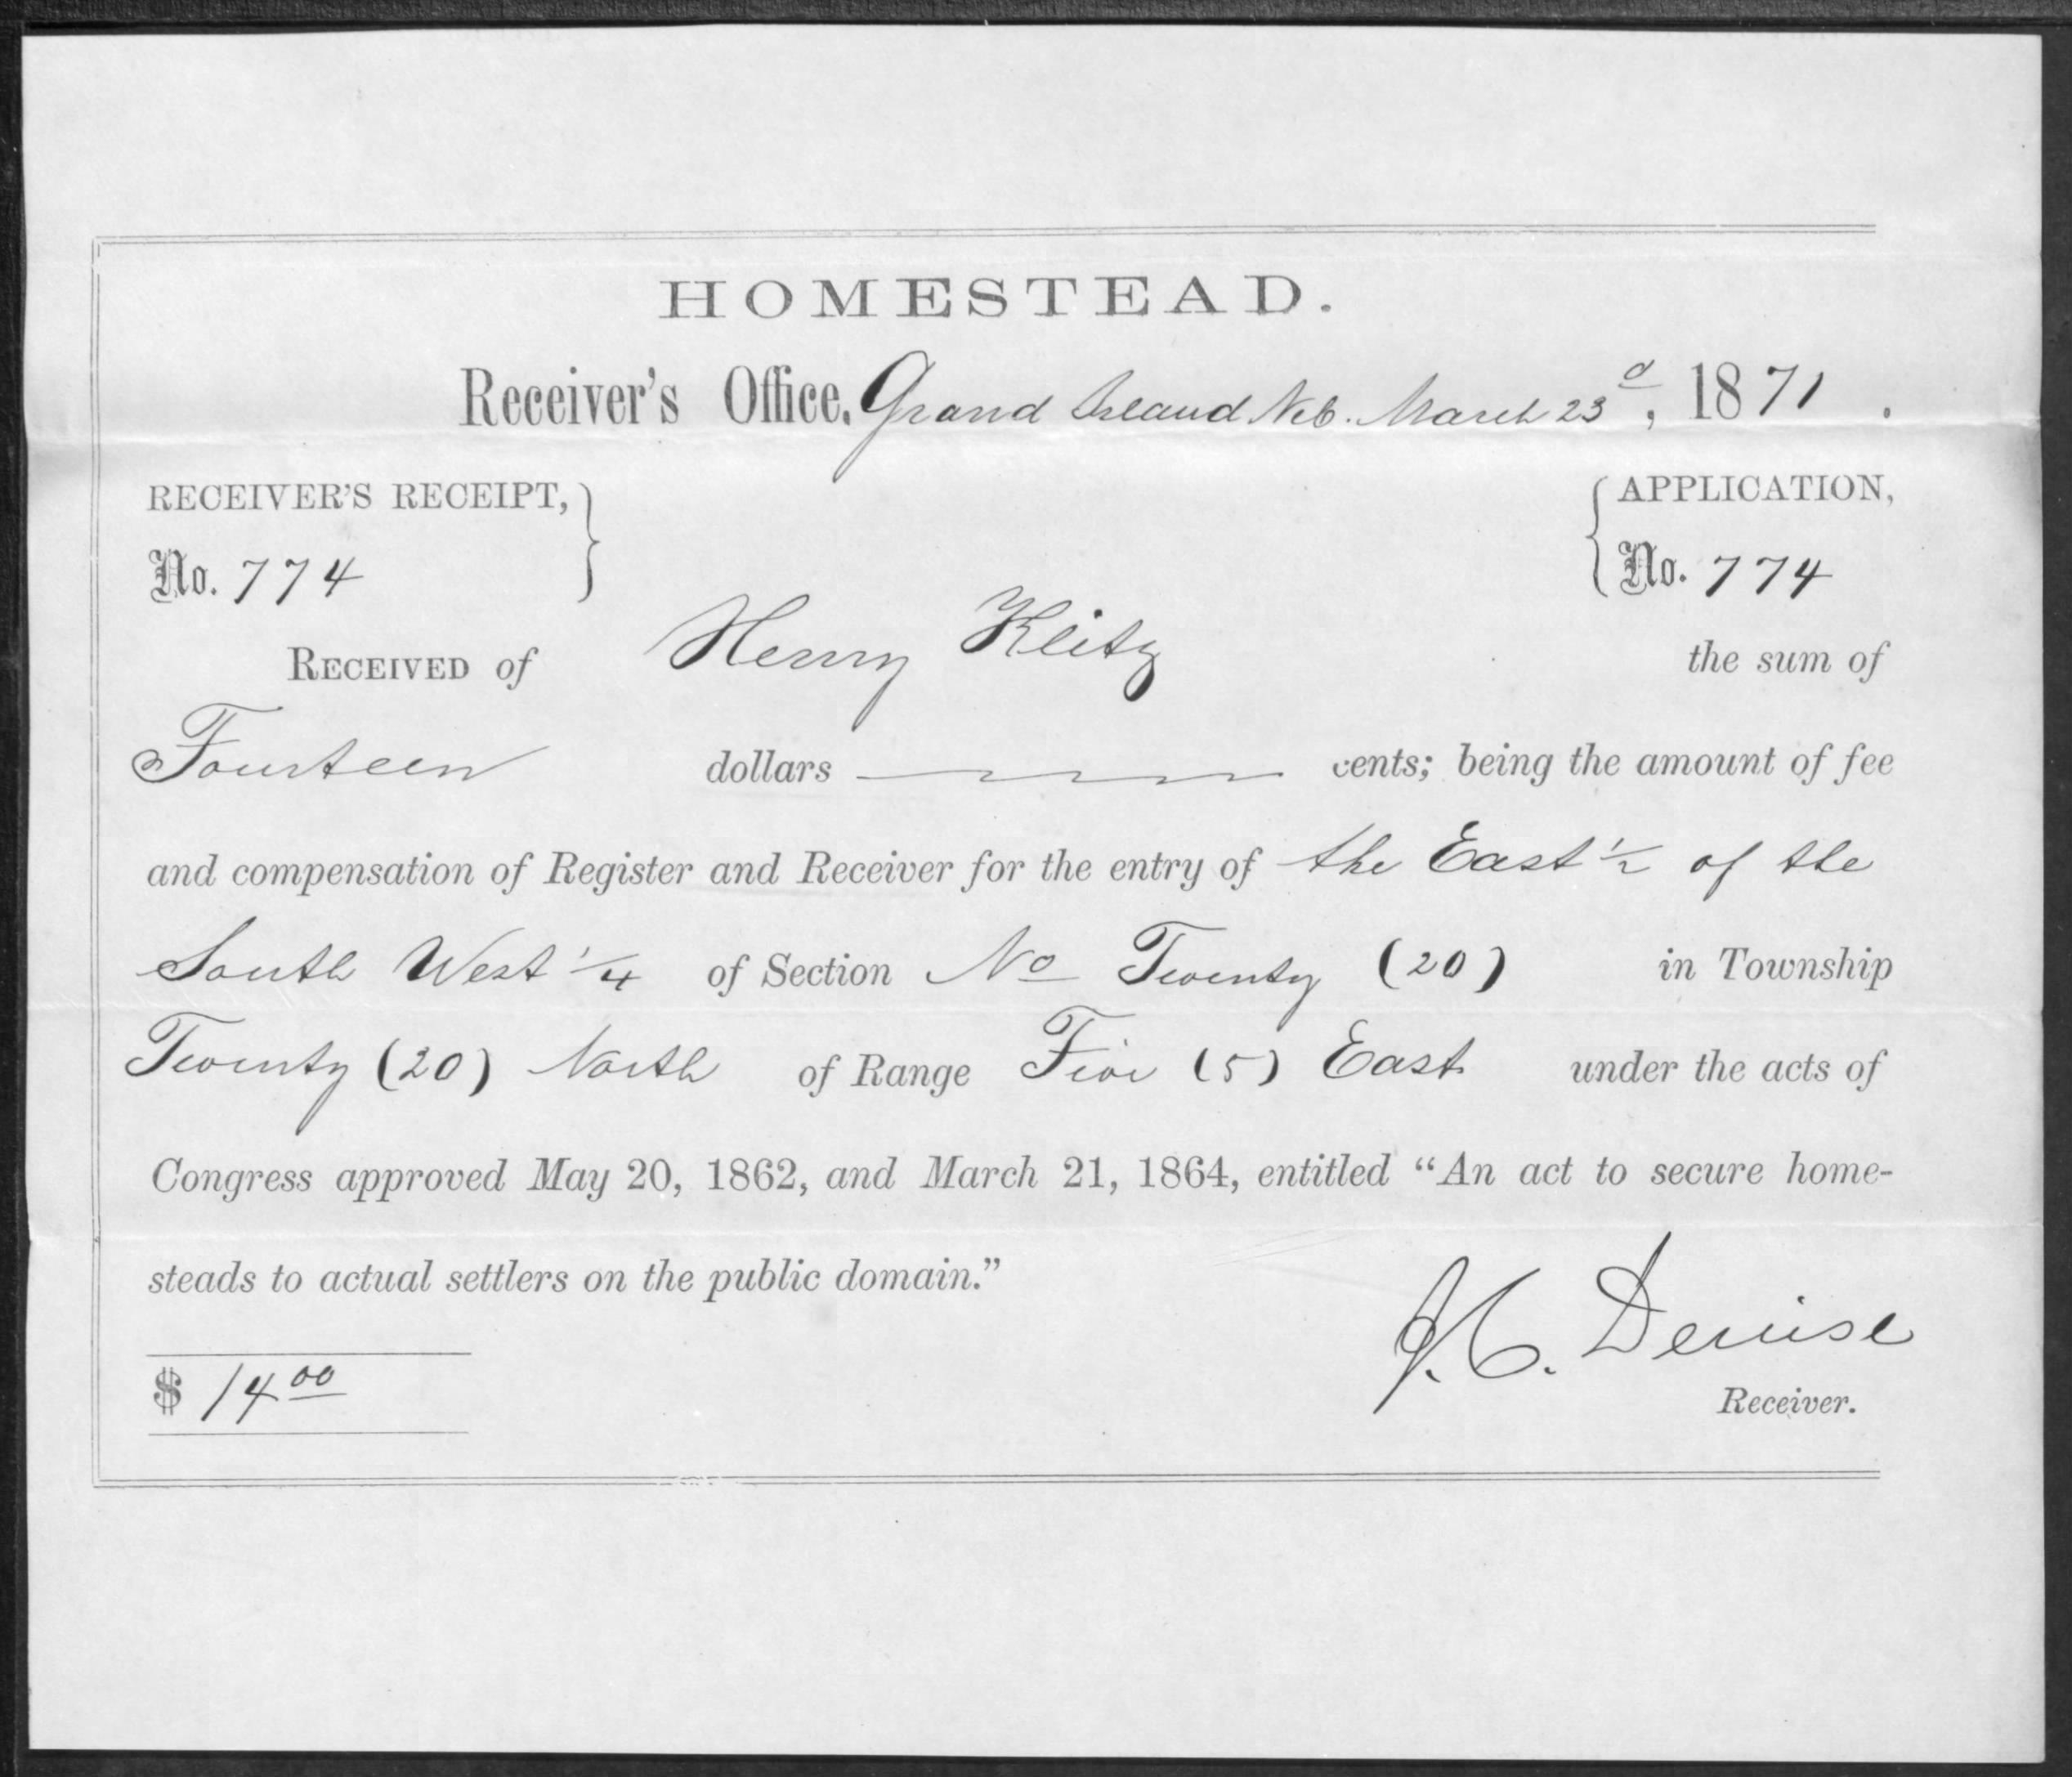 HOMESTEAD.
Receiver's Office, Grand Island Neb. March 23d, 1871.
RECEIVER'S RECEIPT, APPLICATION,
No. 774 No. 774
RECEIVED of Henry Kleitz the sum of
Fourteen dollars cents; being the amount of fee
and compensation of Register and Receiver for the entry of the East 1/2 of the
South West 1/4 of Section No Twenty (20) in Township
Twenty (20) North of Range Five (5) East under the acts of
Congress approved May 20, 1862, and March 21, 1864, entitled "An act to secure home-
steads to actual settlers on the public domain."
$ 14.00 J. C. Denise
Receiver.